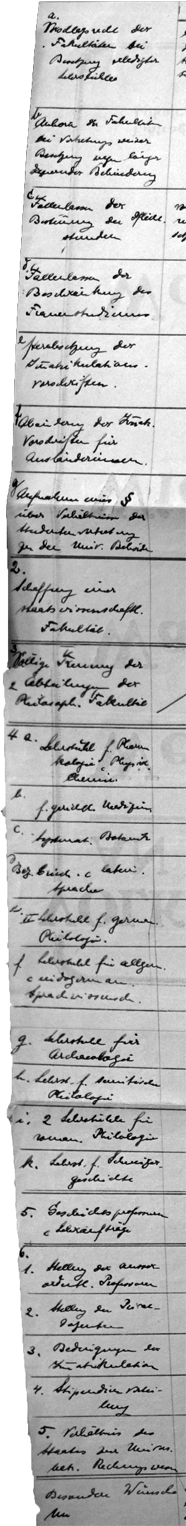 a.
Vorschlagsrecht der
Fakultäten bei
Besetzung erledigter
Lehrstühle
b
der Fakultäten
bei
Besetzung wegen länger
dauernder Behinderung
c.
Fallenlassen der
Bestimmung der Pflicht-
stunden
d.
Fallenlassen der
Beschränkung des
Frauenstudiums
e Herabsetzung der
Immatrikulations-
vorschriften.
f Abänderung der
Vorschriften für
Ausländerinnen.
g Aufnahme eines §
über Verhältnis der
zu den Univ. Behörden
2.
Schaffung einer
staatswissenschaftl.
Fakultät.
Völlige Trennung der
2 Abtheilungen der
Philosoph. Fakultät
4 a. Lehrstuhl f. Pharma-
kologie, Physiol.
Chemie
b.
f. gerichtl. Medizin
c.
Systemat. Botanik
Griech. & latein.
Sprache
e. II Lehrstuhl f. german.
Philologie.
f Lehrstuhl für allgem.
& indogerman.
Sprachwissensch.
g. Lehrstuhl für
Archaeologie
h. Lehrst. f. semitische
Philologie
i. 2 Lehrstühle für
roman. Philologie
k. Lehrst. f. Schweizer-
geschichte
5. professuren
& Lehraufträge
6.
1. Stellung der ausser-
ordentl. Professoren
2. Stellung der Privat-
dozenten
3. Bedingungen der
Immatrikulation
4. Stipendien
5. Verhältnis des
Staates zur Univers.
Besondere Wünsche